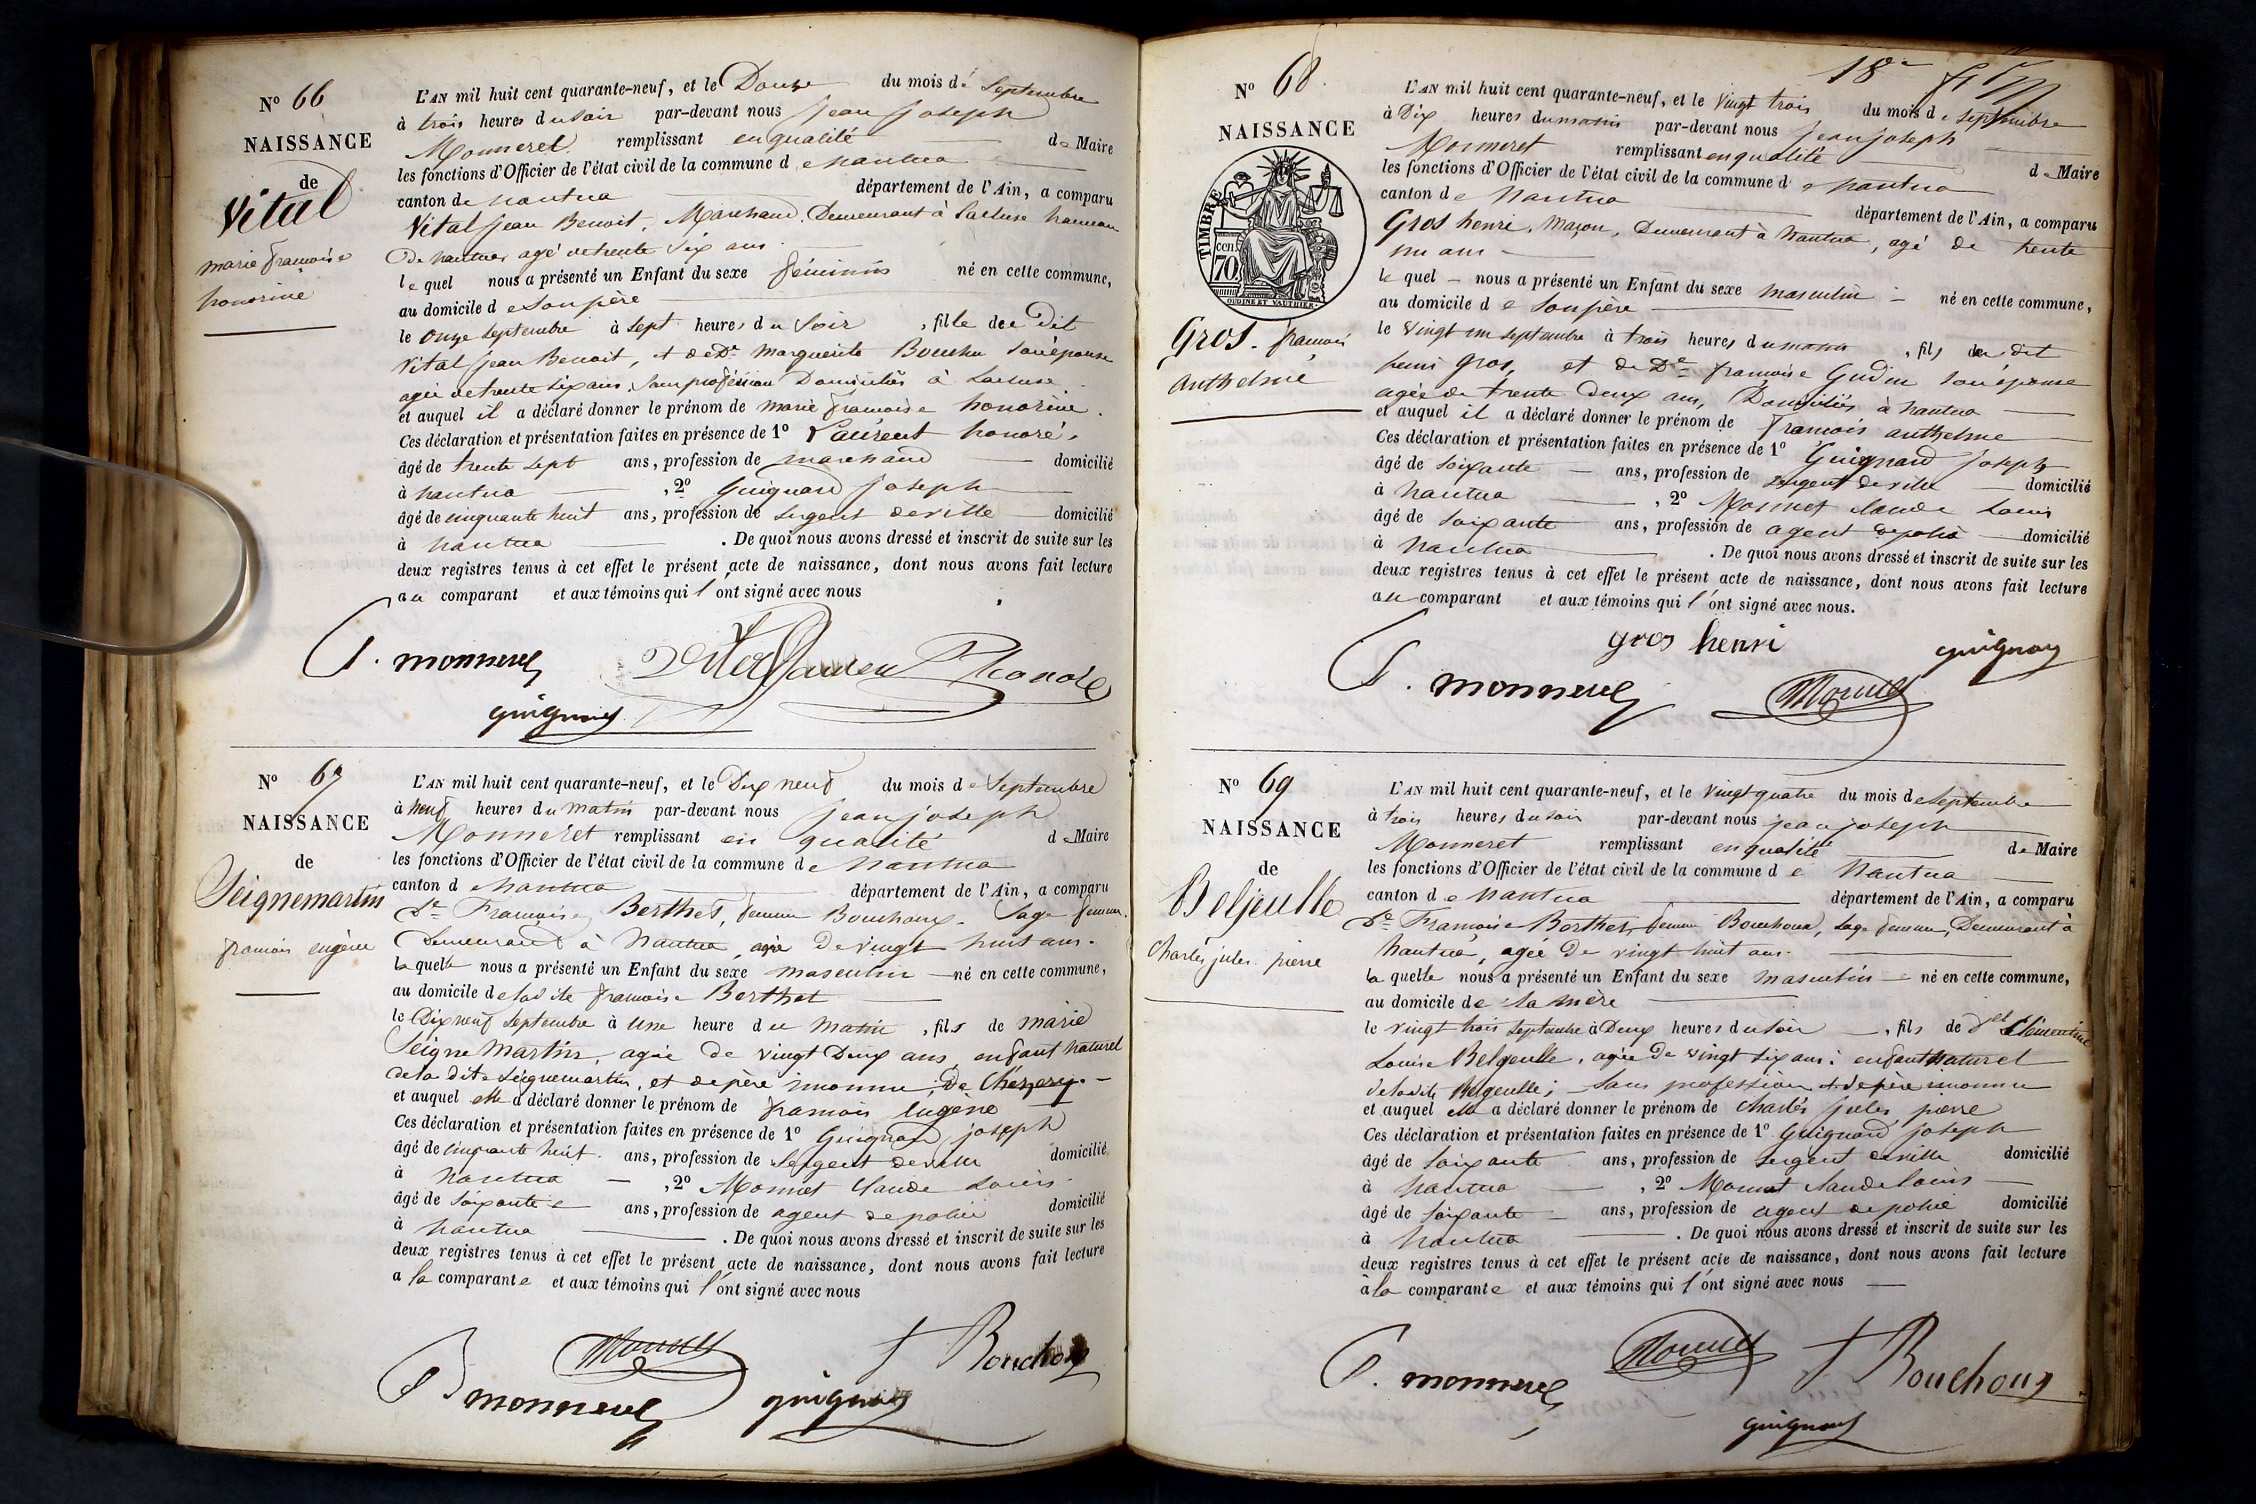 N° 66
NAISSANCE
de
Vital
marie françoise
honorine
L'AN mil huit cent quarante-neuf, et le Douze du mois de Septembre
à trois heures du soir par-devant nous Jean Joseph
Monneret remplissant en qualité de Maire
les fonctions d'Officier de l'état civil de la commune de nantua
canton de nantua département de l'Ain, a comparu
Vital Jean Benoit, Marchand, Demeurant à Lacluse hameau
De nantua agé de trente six ans
lequel nous a présenté un Enfant du sexe féminin né en cette commune,
au domicile de son père
le onze septembre à sept heures du soir, fille de Dit
Vital Jean Benoit, et de De Marguerite Bouchu son épouse
agée de trente six ans, sans profession Domiciliés à Lacluse
et auquel il a déclaré donner le prénom de marie françoise honorine.
Ces déclaration et présentation faites en présence de 1° Laurent honoré,
âgé de trente sept ans, profession de marchand domicilié
à nantua, 2° Guignard Joseph
âgé de cinquante huit ans, profession de sergent de ville domicilié
à nantua. De quoi nous avons dressé et inscrit de suite sur les
deux registres tenus à cet effet le présent acte de naissance, dont nous avons fait lecture
au comparant et aux témoins qui l'ont signé avec nous
J. monneret
guignard
N° 67
NAISSANCE
de
Seignemartin
francois eugène
L'AN mil huit cent quarante-neuf, et le Dix neuf du mois de Septembre
à neuf heures du matin par-devant nous Jean joseph
Monneret remplissant en qualité de Maire
les fonctions d'Officier de l'état civil de la commune de nantua
canton de nantua département de l'Ain, a comparu
De Françoise Berthet, femme Bouchoux, Sage femme,
Demeurant à Nantua, agée De vingt huit ans.
laquelle nous a présenté un Enfant du sexe masculin né en cette commune,
au domicile de ladite françoise Berthet
le Dix neuf septembre à une heure du matin, fils de marie
Seigne Martin, agée de vingt Deux ans, enfant naturel
de la dite Seignemartin, et de père inconnu; De Chézery.
et auquel elle a déclaré donner le prénom de francois Eugène
Ces déclaration et présentation faites en présence de 1° Guignard joseph
âgé de cinquante huit ans, profession de sergent de ville domicilié
à nantua, 2° Monnet Claude Louis
âgé de soixante ans, profession de agent de police domicilié
à nantua. De quoi nous avons dressé et inscrit de suite sur les
deux registres tenus à cet effet le présent acte de naissance, dont nous avons fait lecture
à la comparante et aux témoins qui l'ont signé avec nous
Monnet
f Bouchoux
J monneret
guignard
18e
N° 68
NAISSANCE
TIMBRE
70 cen
OUDINE ET VAUTHIER
Gros. francois
anthelme
L'AN mil huit cent quarante-neuf, et le vingt trois du mois de septembre
à Dix heures du matin par-devant nous jean joseph
Monneret remplissant en qualité de Maire
les fonctions d'Officier de l'état civil de la commune de nantua
canton de Nantua département de l'Ain, a comparu
Gros henri, Maçon, Demeurant à Nantua, agé de trente
un ans
lequel nous a présenté un Enfant du sexe masculin né en cette commune,
au domicile de son père
le vingt un septembre à trois heures du matin, fils du dit
henri Gros, et de De françoise Gudin son épouse
agée de trente Deux ans, Domiciliés à nantua
et auquel il a déclaré donner le prénom de francois anthelme
Ces déclaration et présentation faites en présence de 1° Guignard joseph
âgé de soixante ans, profession de sergent de ville domicilié
à nantua, 2° Monnet Claude Louis
âgé de soixante ans, profession de agent de police domicilié
à nantua. De quoi nous avons dressé et inscrit de suite sur les
deux registres tenus à cet effet le présent acte de naissance, dont nous avons fait lecture
au comparant et aux témoins qui l'ont signé avec nous.
gros henri
guignard
J. monneret
Monnet
N° 69
NAISSANCE
de
Beljeulle
Charles jules pierre
L'AN mil huit cent quarante-neuf, et le vingt quatre du mois de septembre
à trois heures du soir par-devant nous jean joseph
Monneret remplissant en qualité de Maire
les fonctions d'Officier de l'état civil de la commune de Nantua
canton de Nantua département de l'Ain, a comparu
De Françoise Berthet, femme Bouchoux, sage femme, Demeurant à
Nantua, agée De vingt huit ans.
laquelle nous a présenté un Enfant du sexe masculin né en cette commune,
au domicile de sa mère
le vingt trois septembre à Deux heures du soir, fils de Delle Clémentine
Louise Beljeulle, agée De vingt six ans; enfant naturel
de ladite Beljeulle; sans profession et de père inconnu
et auquel elle a déclaré donner le prénom de charles jules pierre
Ces déclaration et présentation faites en présence de 1° Guignard joseph
âgé de soixante ans, profession de sergent de ville domicilié
à nantua, 2° Monnet Claude Louis
âgé de soixante ans, profession de agent de police domicilié
à nantua. De quoi nous avons dressé et inscrit de suite sur les
deux registres tenus à cet effet le présent acte de naissance, dont nous avons fait lecture
à la comparante et aux témoins qui l'ont signé avec nous
Monnet
f Bouchoux
J. monneret
guignard